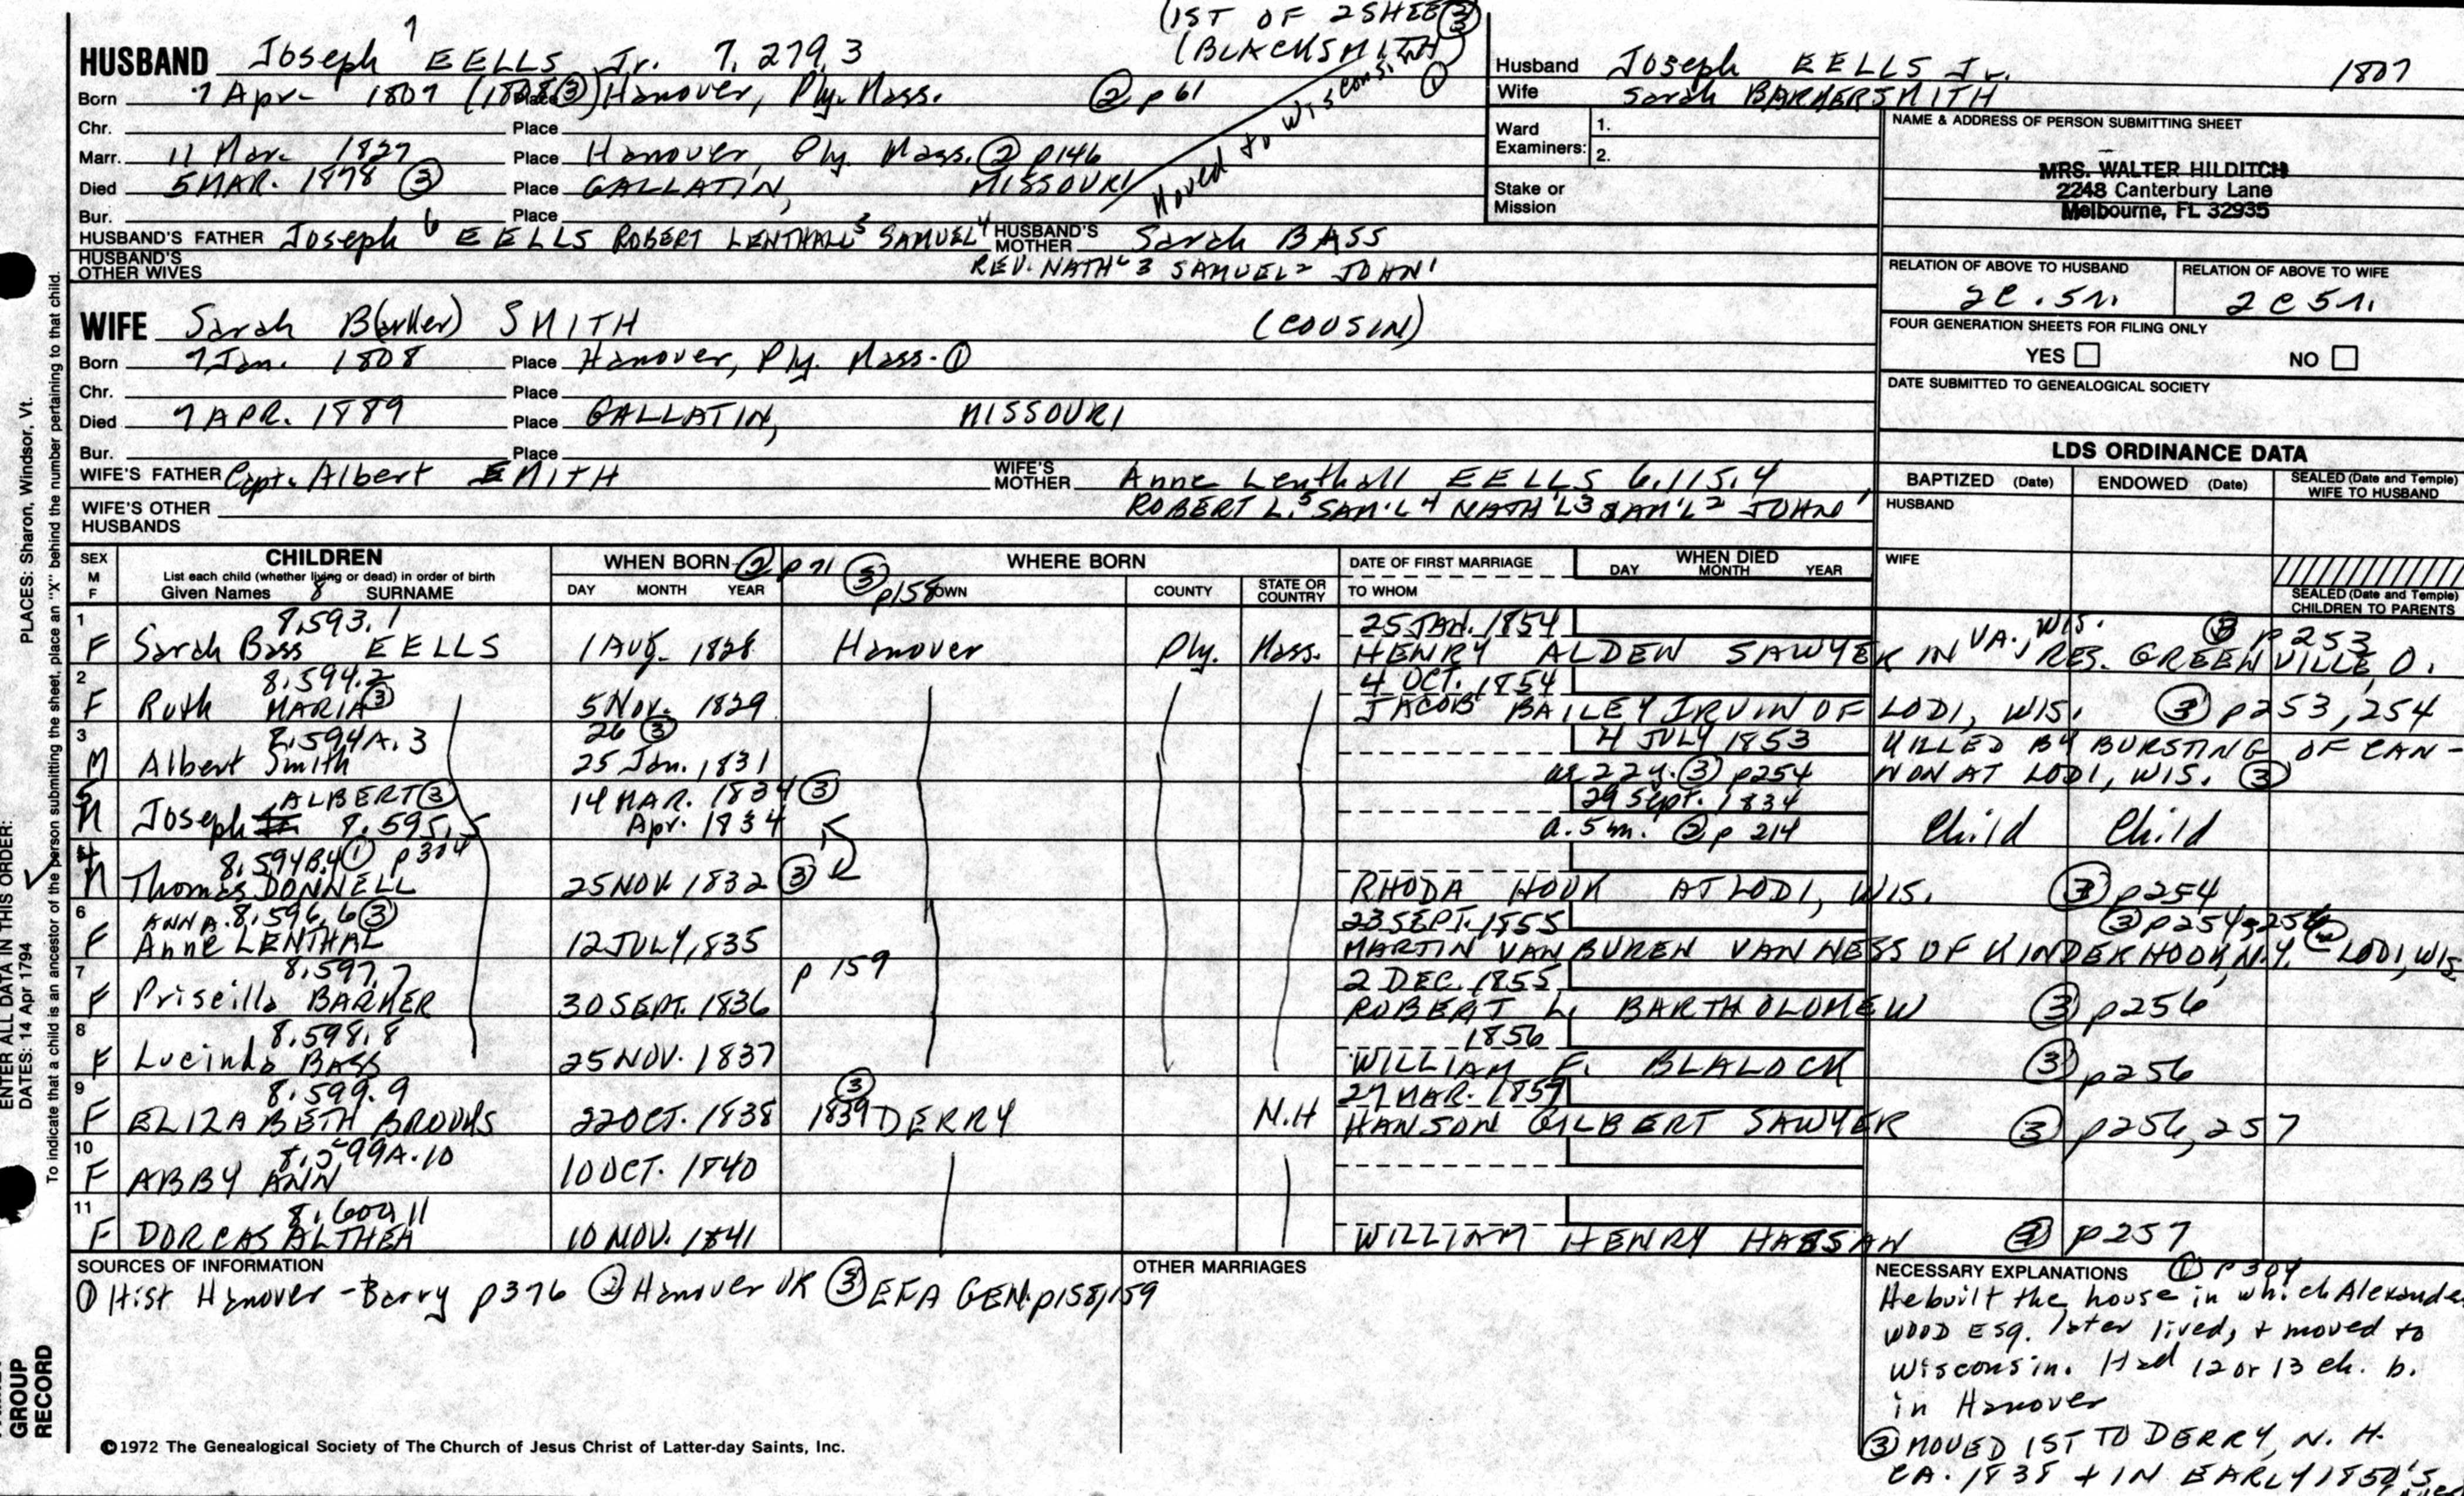 7 (1ST OF 2 SHEE
HUSBAND Joseph EELLS Jr. 7,279,3 (BLACKSMITH)
Born 7 Apr. 1807 (1808 ③) Place Hanover, Ply. Mass. ② p 61
Moved to Wisconsin ①
Chr. Place
Marr. 11 Mar. 1827 Place Hanover, Ply. Mass. ② p146
Died 5 MAR. 1878 ③ Place GALLATIN, MISSOURI
Bur. Place
HUSBAND'S FATHER Joseph 6 EELLS ROBERT LENTHALL 5 SAMUEL 4 HUSBAND'S MOTHER Sarah BASS
HUSBAND'S OTHER WIVES REV. NATH'L 3 SAMUEL 2 JOHN 1
WIFE Sarah B(arker) SMITH (COUSIN)
Born 7 Jan. 1808 Place Hanover, Ply. Mass. ①
Chr. Place
Died 7 APR. 1889 Place GALLATIN, MISSOURI
Bur. Place
WIFE'S FATHER Capt. Albert SMITH WIFE'S MOTHER Anne Lenthall EELLS 6,115,4
WIFE'S OTHER HUSBANDS ROBERT L. 5 SAM'L 4 NATH'L 3 SAM'L 2 JOHN 1
Husband Joseph EELLS Jr. 1807
Wife Sarah BARKER SMITH
Ward Examiners: 1.
2.
Stake or Mission
NAME & ADDRESS OF PERSON SUBMITTING SHEET
MRS. WALTER HILDITCH
2248 Canterbury Lane
Melbourne, FL 32935
RELATION OF ABOVE TO HUSBAND RELATION OF ABOVE TO WIFE
2c.5r. 2c5r.
FOUR GENERATION SHEETS FOR FILING ONLY
YES NO
DATE SUBMITTED TO GENEALOGICAL SOCIETY
LDS ORDINANCE DATA
BAPTIZED (Date) ENDOWED (Date) SEALED (Date and Temple) WIFE TO HUSBAND
HUSBAND
WIFE
SEALED (Date and Temple) CHILDREN TO PARENTS
SEX M F CHILDREN WHEN BORN ② p 71 ③ p158 WHERE BORN DATE OF FIRST MARRIAGE WHEN DIED
List each child (whether living or dead) in order of birth
Given Names 8 SURNAME DAY MONTH YEAR TOWN COUNTY STATE OR COUNTRY TO WHOM DAY MONTH YEAR
1 8,593.1 25 JAN. 1854
F Sarah Bass EELLS 1 AUG. 1828 Hanover Ply. Mass. HENRY ALDEN SAWYER IN VA., WIS. RES. GREENVILLE, O. ③ p253
2 8,594.2 4 OCT. 1854
F Ruth MARIA ③ 5 NOV. 1829 JACOB BAILEY IRVIN OF LODI, WIS. ③ p253, 254
3 8,594A.3 26 ③ 4 JULY 1853 KILLED BY BURSTING OF CAN-
M Albert Smith 25 Jan. 1831 ae 22y. ③ p254 NON AT LODI, WIS. ③
5 ALBERT ③ 14 MAR. 1834 ③ 29 Sept. 1834
M Joseph 8,595,5 Apr. 1834 a. 5m. ② p 214 Child Child
4 8,594B.4 ① p304
M Thomas DONNELL 25 NOV. 1832 ③ RHODA HOUK AT LODI, WIS. ③ p254
6 ANNA 8,596,6 ③ 23 SEPT. 1855 ③ p254
F Anne LENTHAL 12 JULY, 1835 MARTIN VAN BUREN VAN NESS OF KINDERHOOK, N.Y. LODI, WIS
7 8,597,7 p 159 2 DEC. 1855
F Priscilla BARKER 30 SEPT. 1836 ROBERT L. BARTHOLOMEW ③ p256
8 8,598.8 1856
F Lucinda BASS 25 NOV. 1837 WILLIAM F. BLALOCK ③ p256
9 8,599.9 ③ 27 MAR. 1859
F ELIZABETH BROOKS 22 OCT. 1838 1839 DERRY N.H HANSON GILBERT SAWYER ③ p256, 257
10 8,599A.10
F ABBY ANN 10 OCT. 1840
11 8,600.11
F DORCAS ALTHEA 10 NOV. 1841 WILLIAM HENRY HASSAN ③ p257
SOURCES OF INFORMATION OTHER MARRIAGES
① Hist Hanover - Barry p376 ② Hanover VR ③ EFA GEN. p158,159
NECESSARY EXPLANATIONS ① p304
He built the house in which Alexande
WOOD ESq. later lived, + moved to
Wisconsin. Had 12 or 13 ch. b.
in Hanover
③ MOVED 1ST TO DERRY, N. H.
CA. 1838 + IN EARLY 1850'S
©1972 The Genealogical Society of The Church of Jesus Christ of Latter-day Saints, Inc.
ENTER ALL DATA IN THIS ORDER:
DATES: 14 Apr 1794 PLACES: Sharon, Windsor, Vt.
To indicate that a child is an ancestor of the person submitting the sheet, place an "X" behind the number pertaining to that child.
GROUP
RECORD